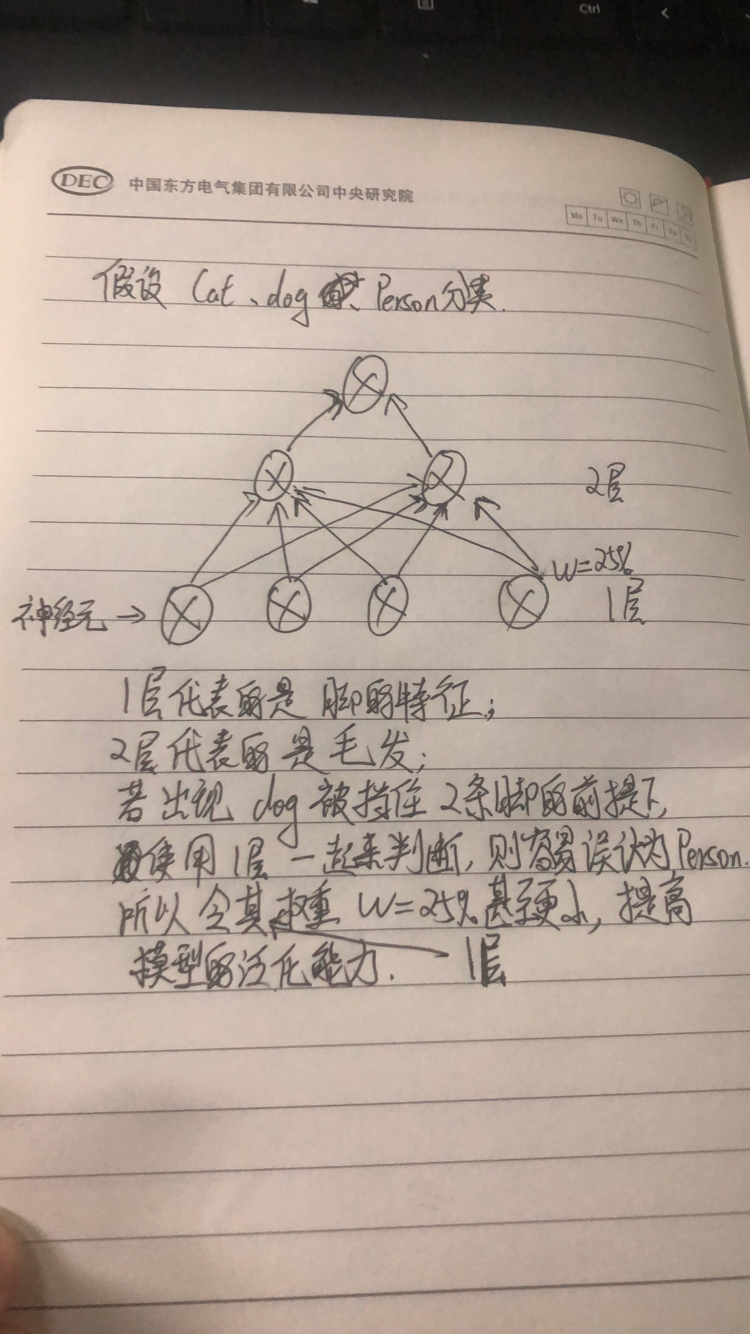 Ctrl
DEC 中国东方电气集团有限公司中央研究院
Mo Tu We Th Fr Sa Su
假设 Cat、dog、Person分类.
2层
W=25%
神经元→ 1层
1层代表的是 脚的特征;
2层代表的是毛发;
若出现 dog 被挡住 2条脚的前提下,
使用 1层 一起来判断, 则容易误认为 Person.
所以令其权重 W=25%甚至更小, 提高
模型的泛化能力. 1层